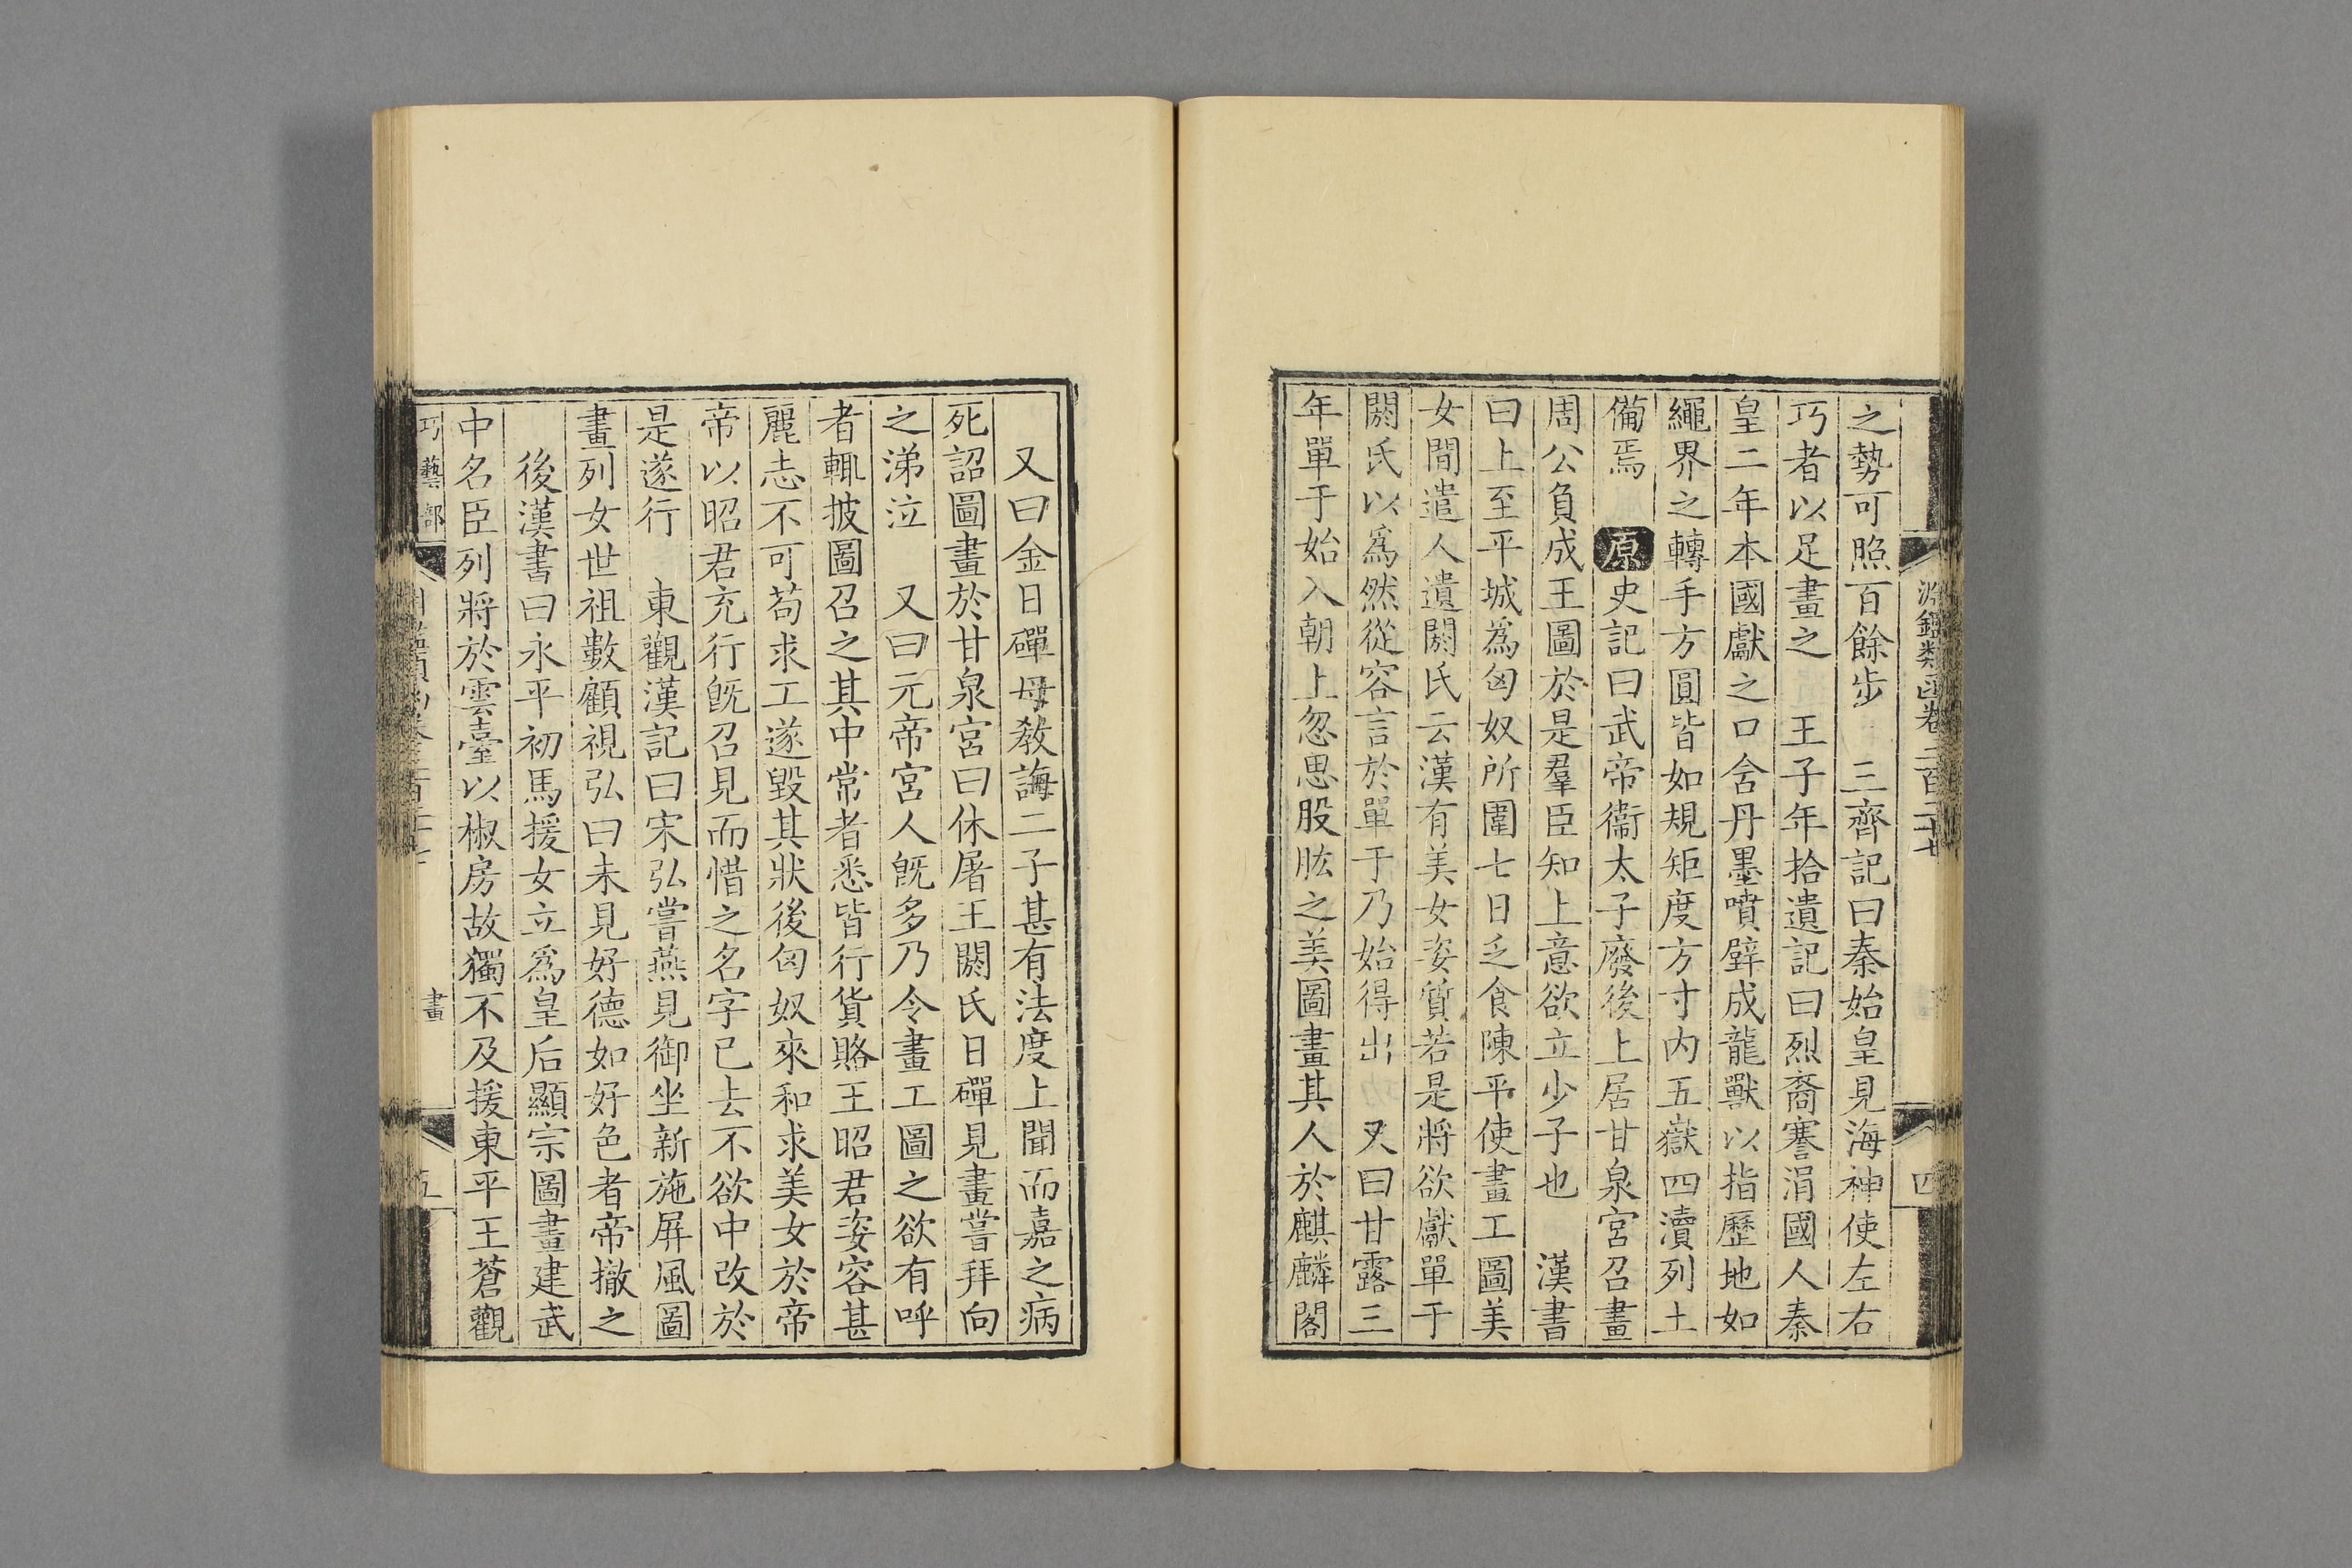 淵鑑類函卷三百二十七
四
之勢可照百餘步 三齊記曰秦始皇見海神使左右
巧者以足畫之 王子年拾遺記曰烈裔謇涓國人秦
皇二年本國獻之口含丹墨噴壁成龍獸以指歷地如
繩界之轉手方圓皆如規矩度方寸内五嶽四瀆列土
備焉 原史記曰武帝衞太子廢後上居甘泉宮召畫
周公負成王圖於是羣臣知上意欲立少子也 漢書
曰上至平城爲匈奴所圍七日乏食陳平使畫工圖美
女間遣人遺閼氏云漢有美女姿質若是將欲獻單于
閼氏以爲然從容言於單于乃始得出 又曰甘露三
年單于始入朝上忽思股肱之美圖畫其人於麒麟閣
又曰金日磾母敎誨二子甚有法度上聞而嘉之病
死詔圖畫於甘泉宮曰休屠王閼氏日磾見畫嘗拜向
之涕泣 又曰元帝宮人旣多乃令畫工圖之欲有呼
者輒披圖召之其中常者悉皆行貨賂王昭君姿容甚
麗志不可苟求工遂毀其狀後匈奴來和求美女於帝
帝以昭君充行旣召見而惜之名字已去不欲中改於
是遂行 東觀漢記曰宋弘嘗燕見御坐新施屏風圖
畫列女世祖數顧視弘曰未見好德如好色者帝撤之
後漢書曰永平初馬援女立爲皇后顯宗圖畫建武
中名臣列將於雲臺以椒房故獨不及援東平王蒼觀
巧藝部
畫
五